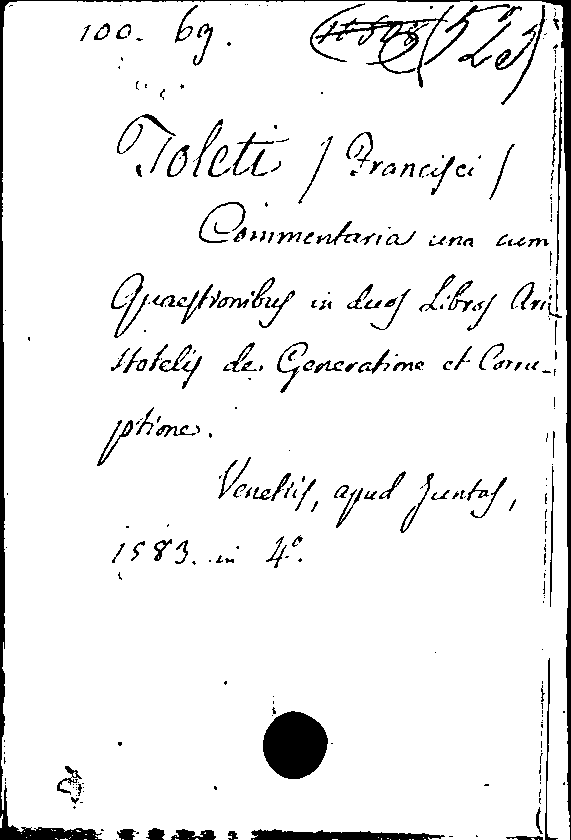 100. 69.
Toleti / Francisci /
Commentaria una cum
Quaestionibus in duos Libros Ari
stotelis de Generatione et Corru-
ptione.
Venetiis, apud Juntas,
1583. in 4º.